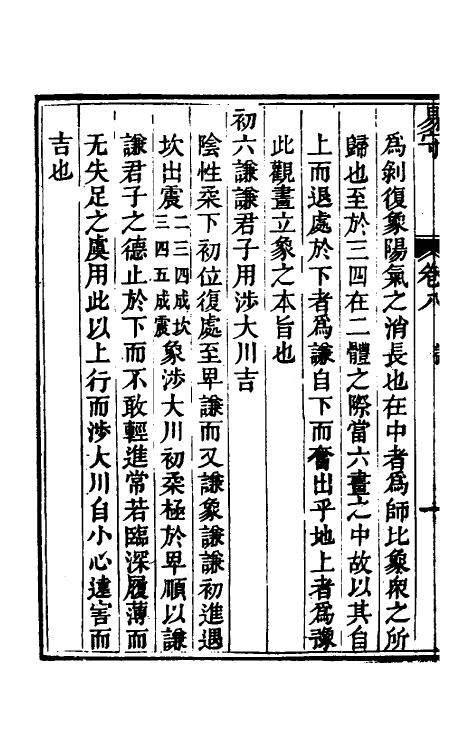 易可
卷八
十
為剝復象陽氣之消長也在中者為師比象衆之所
歸也至於三四在二體之際當六畫之中故以其自
上而退處於下者為謙自下而奮出乎地上者為豫
此觀畫立象之本旨也
初六謙謙君子用涉大川吉
陰性柔下初位復處至卑謙而又謙象謙謙初進遇
坎出震二三四成坎三四五成震象涉大川初柔極於卑順以謙
謙君子之德止於下而不敢輕進常若臨深履薄而
无失足之虞用此以上行而涉大川自小心遠害而
吉也